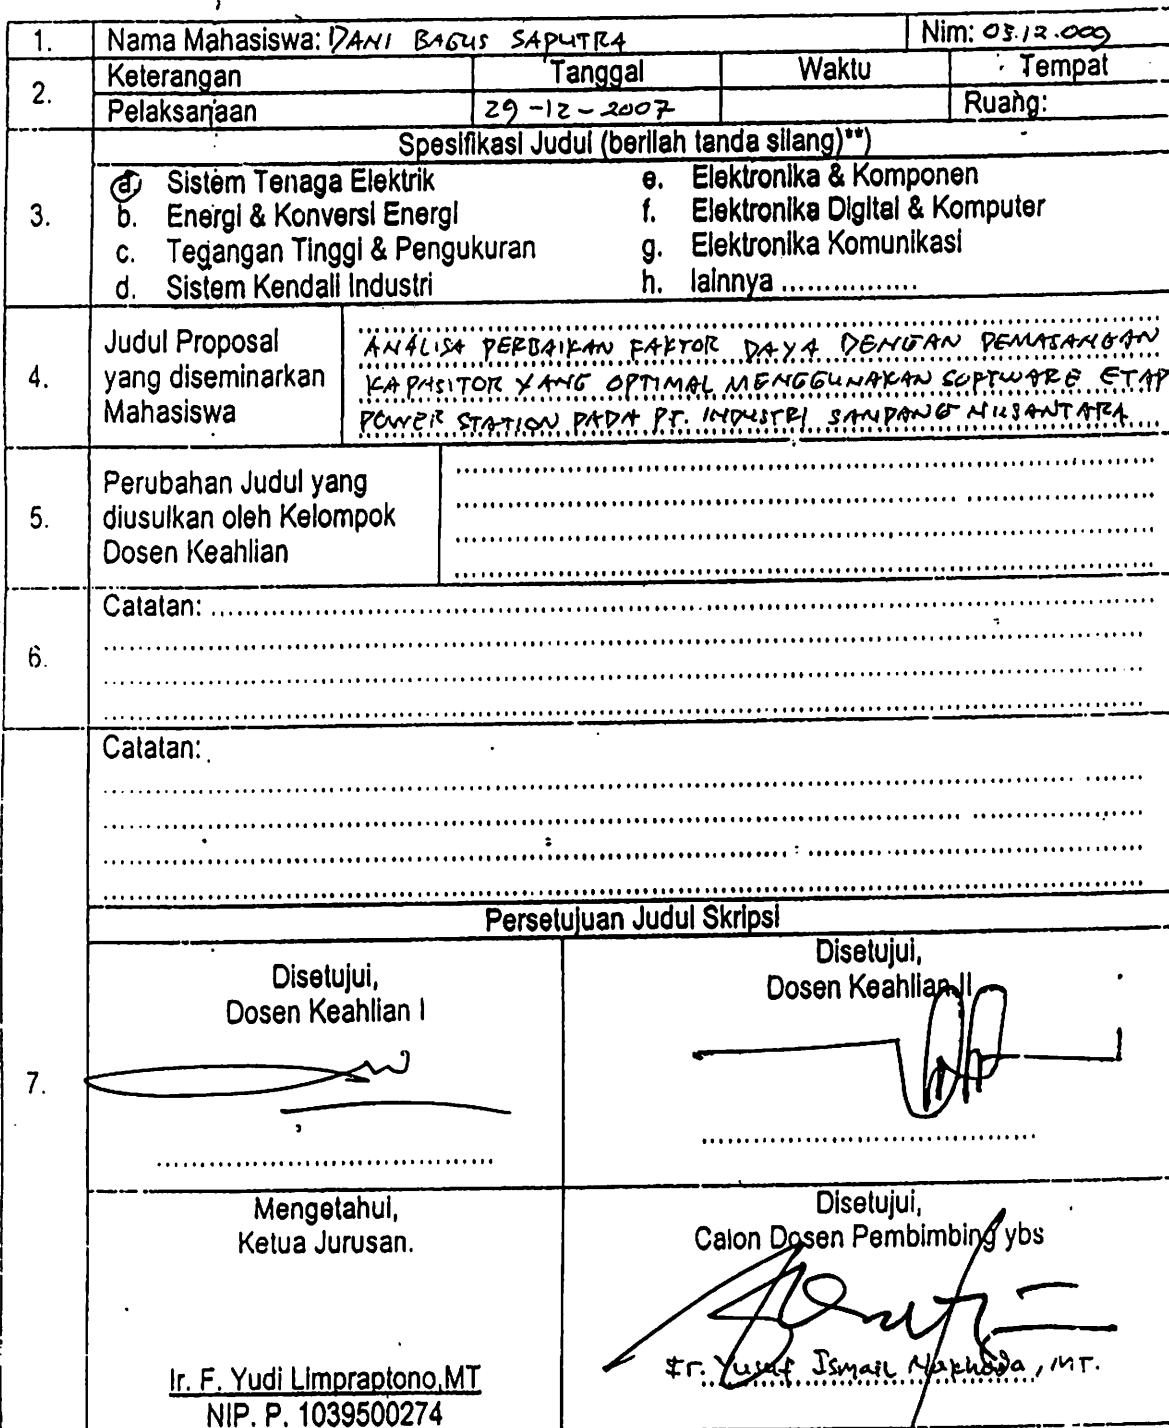 1. Nama Mahasiswa: DANI BAGUS SAPUTRA Nim: 03.12.009
2. Keterangan Tanggal Waktu Tempat
Pelaksanaan 29-12-2007 Ruang:
3. Spesifikasi Judul (berilah tanda silang)**)
a. Sistem Tenaga Elektrik e. Elektronika & Komponen
b. Energi & Konversi Energi f. Elektronika Digital & Komputer
c. Tegangan Tinggi & Pengukuran g. Elektronika Komunikasi
d. Sistem Kendali Industri h. lainnya ................
4. Judul Proposal yang diseminarkan Mahasiswa
ANALISA PERBAIKAN FAKTOR DAYA DENGAN PEMASANGAN
KAPASITOR YANG OPTIMAL MENGGUNAKAN SOFTWARE ETAP
POWER STATION PADA PT. INDUSTRI SANDANG NUSANTARA
5. Perubahan Judul yang
diusulkan oleh Kelompok
Dosen Keahlian
6. Catatan:
7. Catatan:
Persetujuan Judul Skripsi
Disetujui,
Dosen Keahlian I
Disetujui,
Dosen Keahlian II
Mengetahui,
Ketua Jurusan.
Ir. F. Yudi Limpraptono,MT
NIP. P. 1039500274
Disetujui,
Calon Dosen Pembimbing ybs
Ir. Yusuf Ismail Nakhoda, MT.